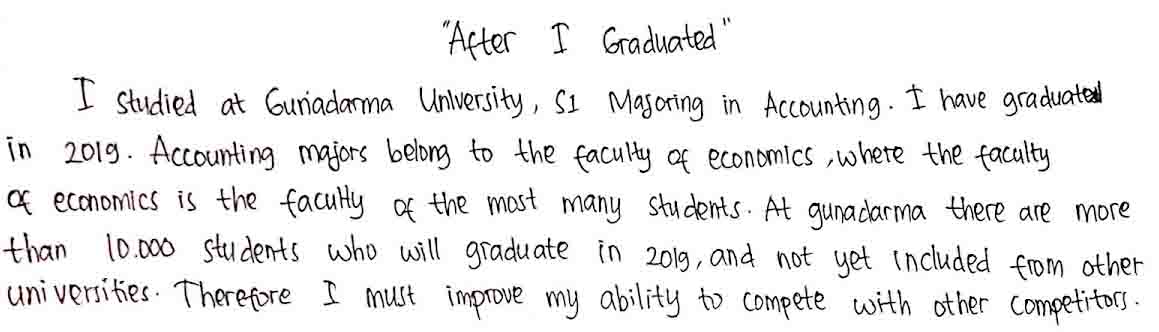 "After I Graduated"
I studied at Gunadarma University, S1 Majoring in Accounting. I have graduated
in 2019. Accounting majors belong to the faculty of economics, where the faculty
of economics is the faculty of the most many students. At gunadarma there are more
than 10.000 students who will graduate in 2019, and not yet included from other
universities. Therefore I must improve my ability to compete with other competitors.